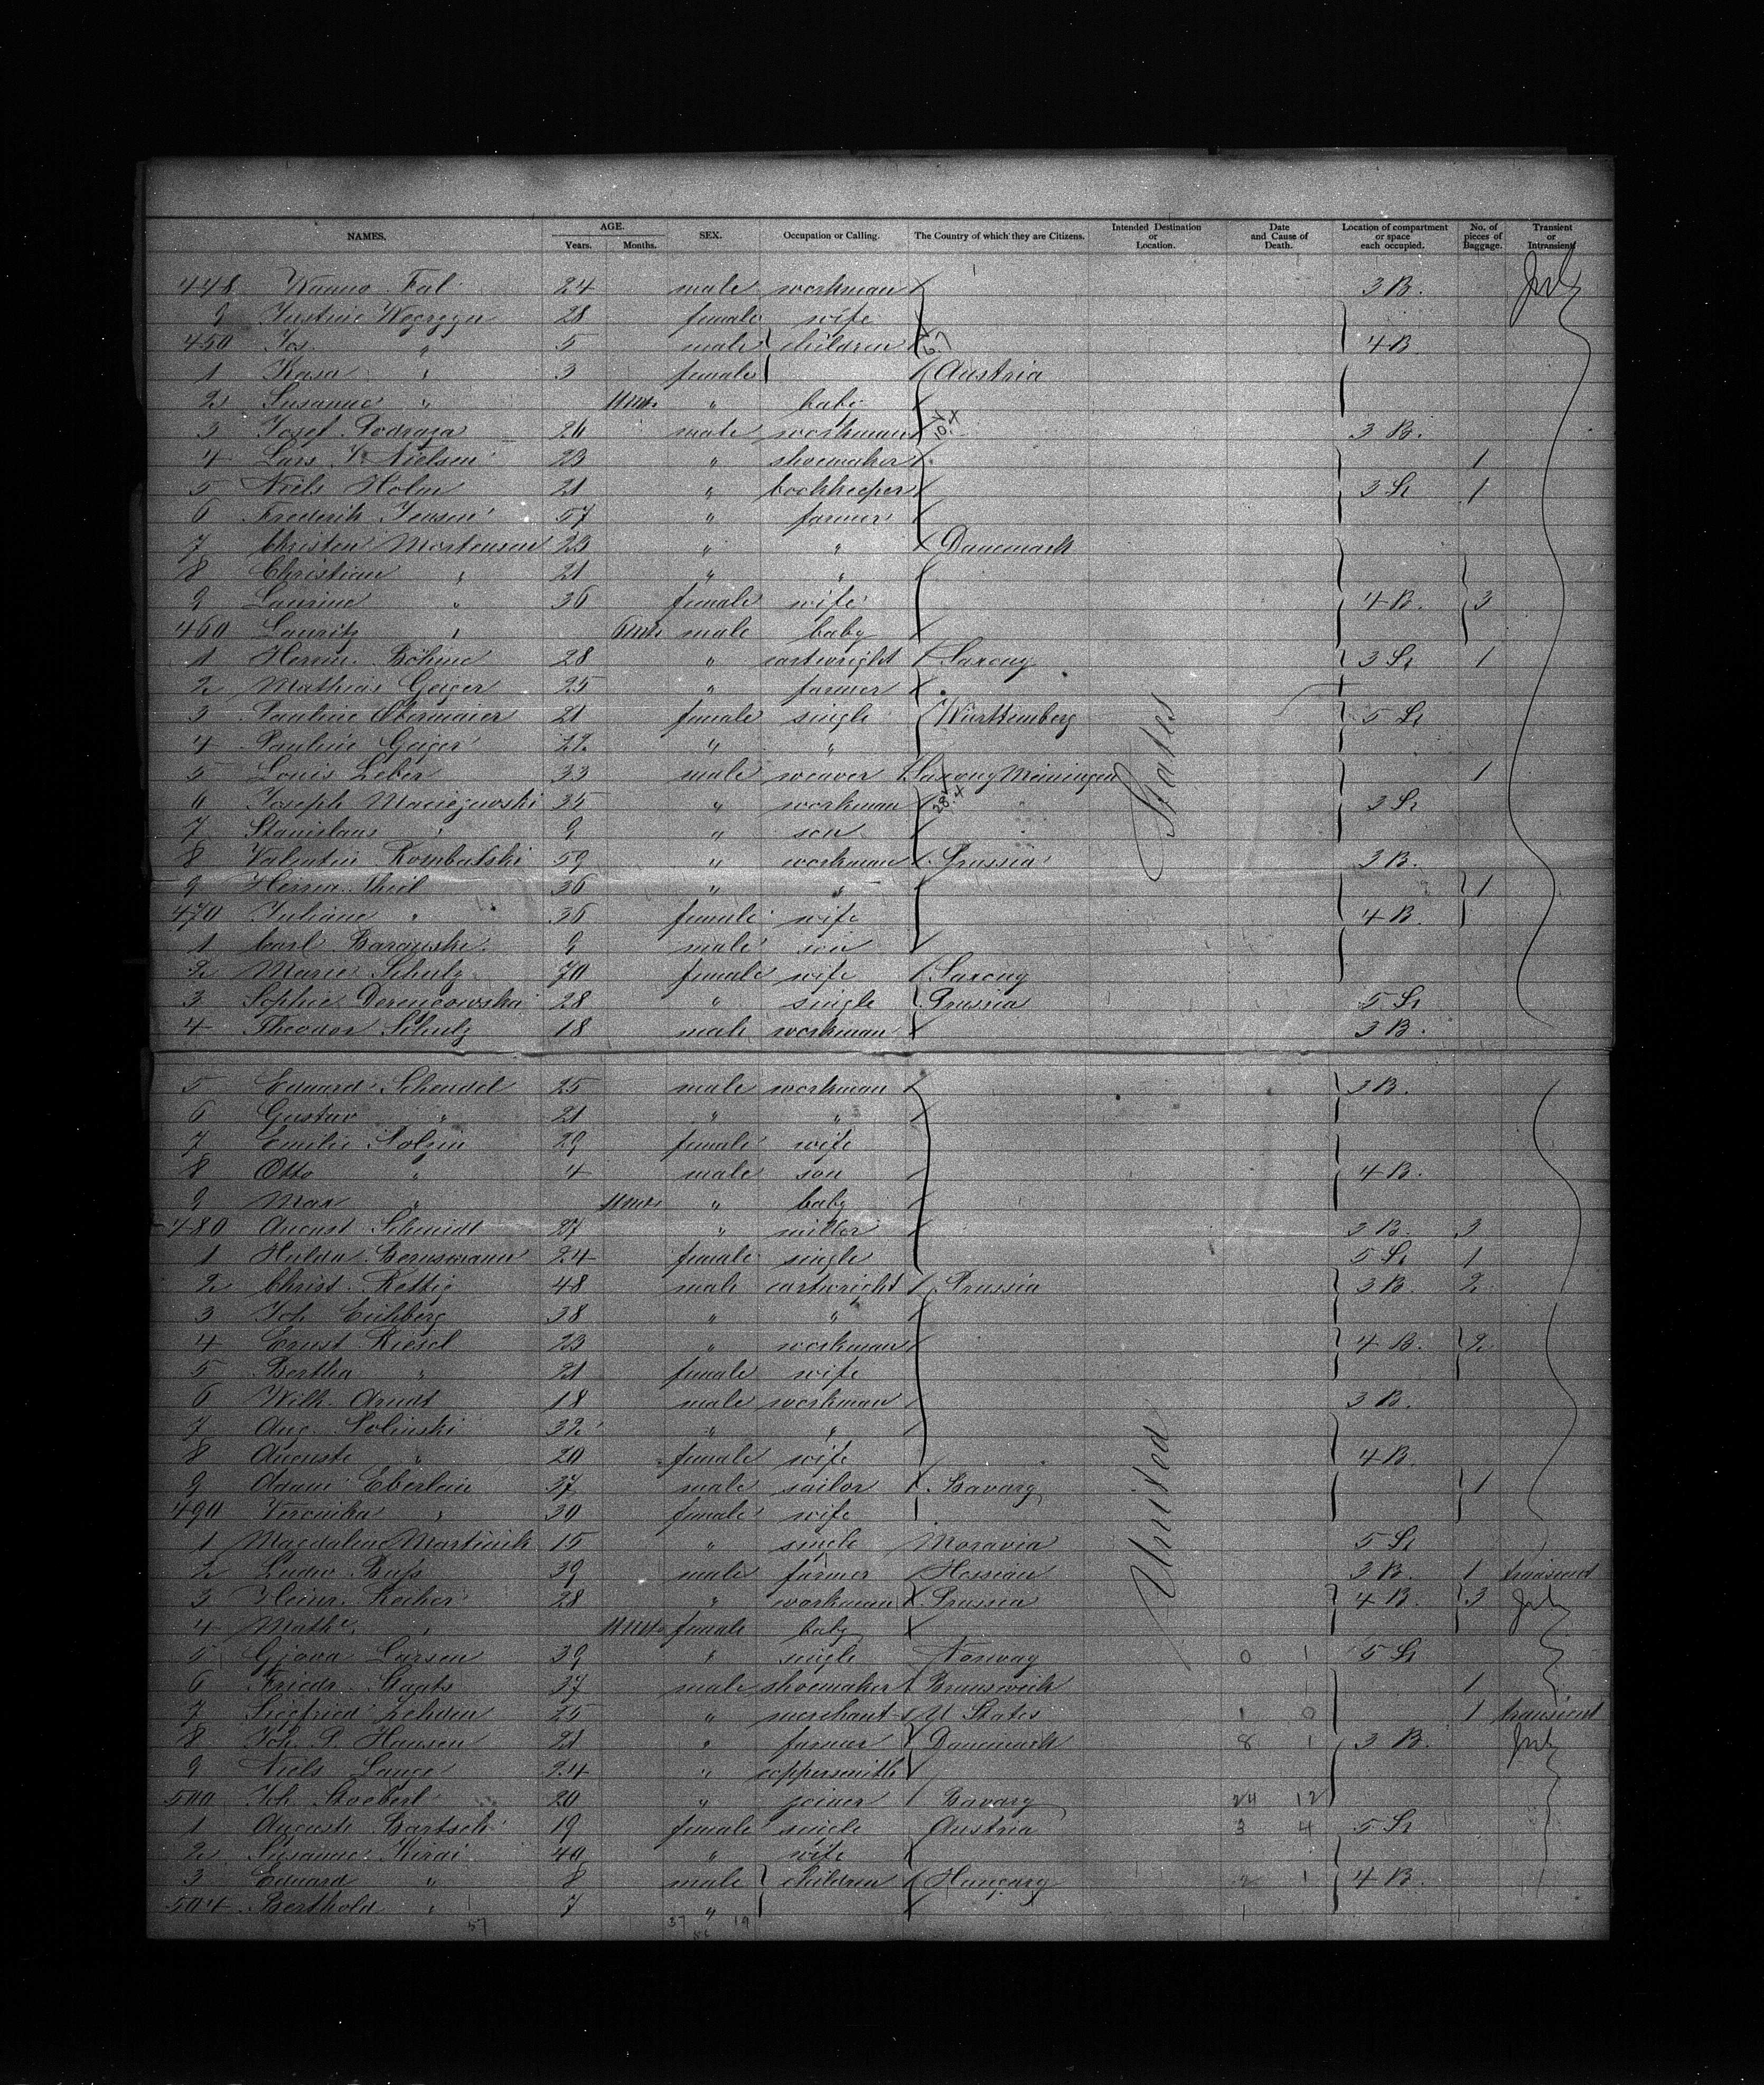 NAMES. AGE. Years. Months. SEX. Occupation or Calling. The Country of which they are Citizens. Intended Destination or Location. Date and Cause of Death. Location of compartment or space each occupied. No. of pieces of Baggage. Transient or Intransient
448 24 male workman 3 B.
9 28 female wife
450 Jos. " 5 male children 4 B
1 " 3 female Austria
2 Susanne " 11 mts " baby
3 Josef 26 male workman 3 B.
4 Lars Nielsen 23 " shoemaker 1
5 Niels Holm 21 " bookkeeper 3 St 1
6 Frederik Jensen 57 " farmer
7 Christen Mortensen 23 " " Danemark
8 Christian " 21 " "
9 Laurine " 36 female wife 4 B. 3
460 Lauritz " 6 mts male baby
1 Herm. Böhme 28 " cartwright Saxony 3 St 1
2 Mathias Geiger 25 " farmer
3 Pauline Obermaier 21 female single Württemberg 5 St
4 Pauline Geiger 22 " "
5 Louis Leber 33 male weaver Saxony Meiningen 1
6 Joseph Maciejewski 35 " workman 3 St
7 Stanislaus " 9 " son
8 Valentin Rombalski 59 " workman Prussia 3 B.
9 Herm. Thiel 36 " " 1
470 Juliane " 36 female wife 4 B.
1 Carl 9 male son
2 Marie Schulz 70 female wife Saxony
3 Sophie 28 " single Prussia 5 St
4 Theodor Schulz 18 male workman 3 B.
5 Eduard Schendel 25 male workman 3 B.
6 Gustav " 21 " "
7 Emilie Polzin 29 female wife
8 Otto " 4 male son 4 B.
9 Max " 11 mts " baby
480 August Schmidt 37 " miller 3 B 3
1 Hulda 24 female single 5 St 1
2 Christ. Rettig 48 male cartwright Prussia 3 B 2
3 Joh. Eichberg 38 " "
4 Ernst Riesel 23 " workman 4 B. 2
5 Bertha " 21 female wife
6 Wilh. Arndt 18 male workman 3 B.
7 Aug. Solinski 32 " "
8 Auguste " 20 female wife 4 B
9 Adam Eberlein 37 male sailor Bavary 1
490 Veronika " 30 female wife
1 Magdalena 15 " single Moravia 5 St
2 Ludw. 39 male farmer Hessian 3 B. 1 transient
3 Heinr. 28 " workman Prussia 4 B. 3
4 Mathe. " 11 mts female baby
5 Larsen 39 " single Norway 0 1 5 St
6 Friedr. Staats 37 male shoemaker Brunswick 1
7 Siegfried 25 " merchant U States 1 0 1 transient
8 Joh. P. Hansen 21 " farmer Danemark 8 1 3 B.
9 Niels Lange 24 " coppersmith
500 Joh. Stoeberl 20 " joiner Bavary 24 12
1 Auguste Bartsch 19 female single Austria 3 4 5 St
2 Susanne Kirai 40 " wife
3 Eduard " 8 male children Hungary 2 1 4 B.
504 Berthold " 7 "
57 37 19
United States